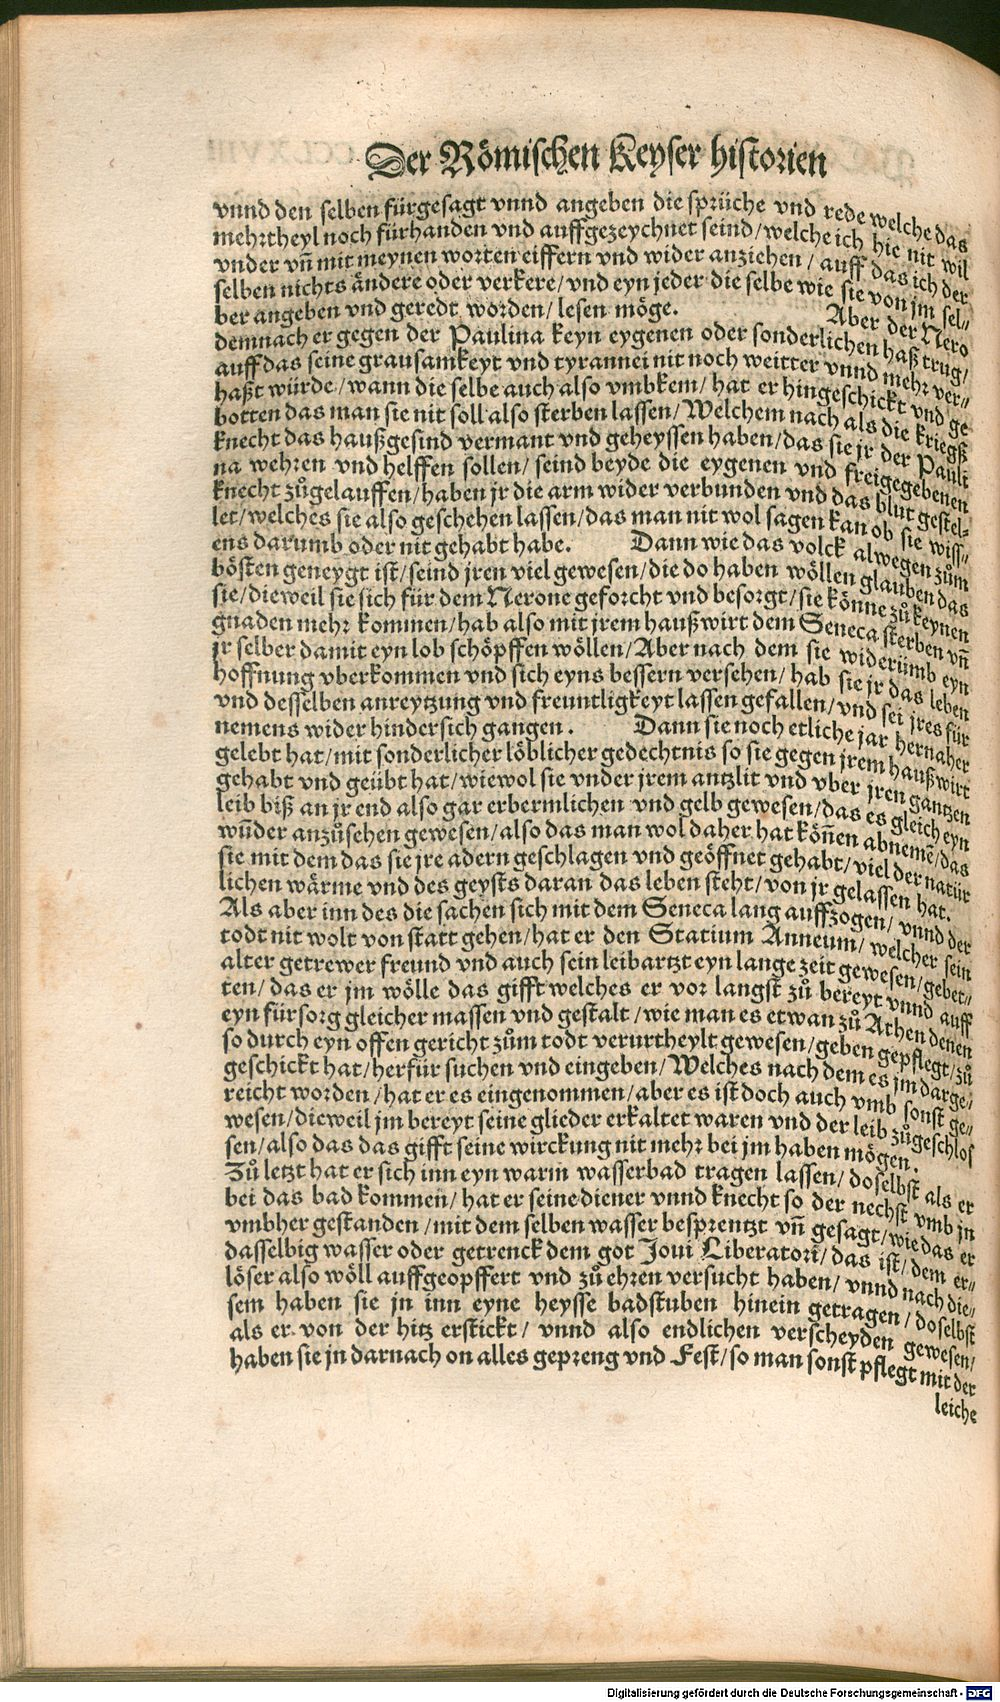 Der Römischen Keyser historien
vnnd den selben fürgesagt vnnd angeben die sprüche vnd rede welche das
mehrtheyl noch fürhanden vnd auffgezeychnet seind/welche ich hie nit wil
vnder vñ mit meynen worten eiffern vnd wider anziehen/auff das ich der
selben nichts ändere oder verkere/vnd eyn jeder die selbe wie sie von jm sel-
ber angeben vnd geredt worden/lesen möge. Aber der Nero
demnach er gegen der Paulina keyn eygenen oder sonderlichen haß trug/
auff das seine grausamkeyt vnd tyrannei nit noch weitter vnnd mehr ver-
haßt würde/wann die selbe auch also vmbkem/hat er hingeschickt vnd ge
botten das man sie nit soll also sterben lassen/Welchem nach als die kriegß
knecht das haußgesind vermant vnd geheyssen haben/das sie jr der Pauli
na wehren vnd helffen sollen/seind beyde die eygenen vnd freigegebenen
knecht zůgelauffen/haben jr die arm wider verbunden vnd das blut gestel-
let/welches sie also geschehen lassen/das man nit wol sagen kan ob sie wiss-
ens darumb oder nit gehabt habe. Dann wie das volck alwegen zům
bösten geneygt ist/seind jren viel gewesen/die do haben wöllen glauben das
sie/dieweil sie sich für dem Nerone geforcht vnd besorgt/sie könne zů keynen
gnaden mehr kommen/hab also mit jrem haußwirt dem Seneca sterben vñ
jr selber damit eyn lob schöpffen wöllen/Aber nach dem sie widerümb eyn
hoffnung vberkommen vnd sich eyns bessern versehen/hab sie jr das leben
vnd desselben anreytzung vnd freuntligkeyt lassen gefallen/vnd sei jres für
nemens wider hindersich gangen. Dann sie noch etliche jar hernaher
gelebt hat/mit sonderlicher löblicher gedechtnis so sie gegen jrem haußwirt
gehabt vnd geübt hat/wiewol sie vnder jrem antzlit vnd vber jren gantzen
leib biß an jr end also gar erbermlichen vnd gelb gewesen/das es gleich eyn
wũder anzůsehen gewesen/also das man wol daher hat köñen abnemẽ/das
sie mit dem das sie jre adern geschlagen vnd geöffnet gehabt/viel der natür
lichen wärme vnd des geysts daran das leben steht/von jr gelassen hat.
Als aber inn des die sachen sich mit dem Seneca lang auffzogen/vnnd der
todt nit wolt von statt gehen/hat er den Statium Anneum/welcher sein
alter getrewer freund vnd auch sein leibartzt eyn lange zeit gewesen/gebet-
ten/das er jm wölle das gifft welches er vor langst zů bereyt vnnd auff
eyn fürsorg gleicher massen vnd gestalt/wie man es etwan zů Athen denen
so durch eyn offen gericht zům todt verurtheylt gewesen/geben gepflegt/zů
geschickt hat/herfür suchen vnd eingeben/Welches nach dem es jm darge-
reicht worden/hat er es eingenommen/aber es ist doch auch vmb sonst ge-
wesen/dieweil jm bereyt seine glieder erkaltet waren vnd der leib zůgeschlos
sen/also das das gifft seine wirckung nit mehr bei jm haben mögen.
Zů letzt hat er sich inn eyn warm wasserbad tragen lassen/doselbst als er
bei das bad kommen/hat er seine diener vnnd knecht so der nechst vmb jn
vmbher gestanden/mit dem selben wasser besprentzt vñ gesagt/wie das er
dasselbig wasser oder getrenck dem got Joui Liberatori/das ist/dem er-
löser also wöll auffgeopffert vnd zů ehren versucht haben/vnnd nach die-
sem haben sie jn inn eyne heysse badstuben hinein getragen/doselbst
als er von der hitz erstickt/vnnd also endlichen verscheyden gewesen/
haben sie jn darnach on alles gepreng vnd Fest/so man sonst pflegt mit der
leiche
Digitalisierung gefördert durch die Deutsche Forschungsgemeinschaft - DFG